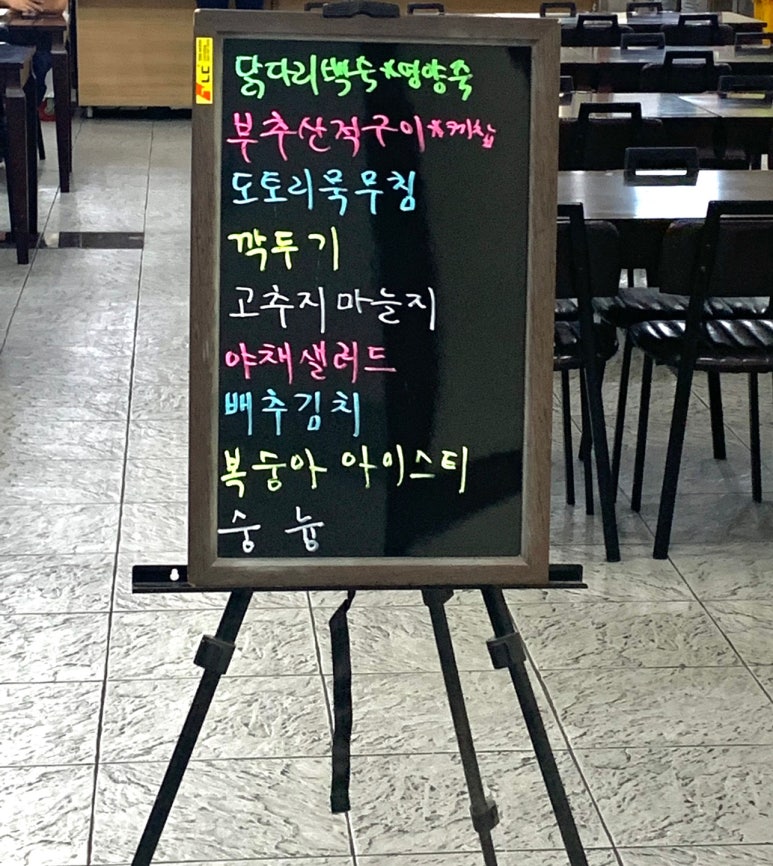 닭다리백숙*영양죽
부추산적구이*케찹
도토리묵무침
깍두기
고추지마늘지
야채샐러드
배추김치
복숭아 아이스티
숭늉
LC